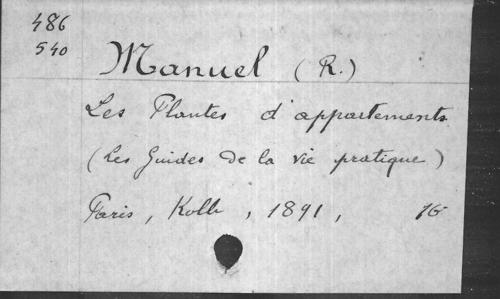 486
540
Manuel (R.)
Les Plantes d'appartements
(Les Guides de la vie pratique)
Paris, Kolb, 1891, 16